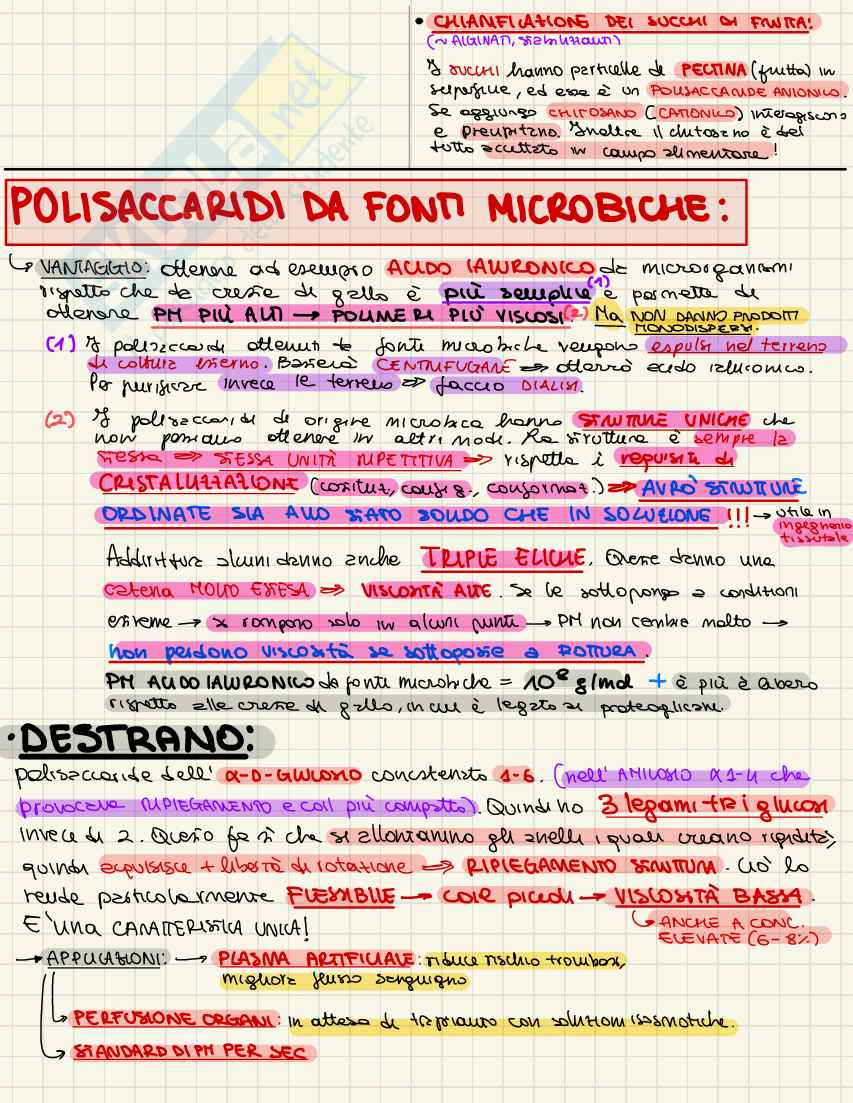 • CHIARIFICAZIONE DEI SUCCHI DI FRUTTA:
(~ ALGINATI, stabilizzanti)
I succhi hanno particelle di PECTINA (frutta) in
superficie, ed essa è un POLISACCARIDE ANIONICO.
Se aggiungo CHITOSANO (CATIONICO) interagiscono
e precipitano. Inoltre il chitosano è del
tutto accettato in campo alimentare!
POLISACCARIDI DA FONTI MICROBICHE:
↳ VANTAGGIO: ottenere ad esempio ACIDO IALURONICO da microrganismi
rispetto che da creste di gallo è più semplice (1) e permette di
ottenere PM PIÙ ALTI → POLIMERI PIÙ VISCOSI. (2) Ma NON DANNO PRODOTTI
MONODISPERSI.
(1) I polisaccaridi ottenuti da fonti microbiche vengono espulsi nel terreno
di coltura esterno. Basterà CENTRIFUGARE ⇒ otterrò acido ialuronico.
Per purificare invece il terreno ⇒ faccio DIALISI.
(2) I polisaccaridi di origine microbica hanno STRUTTURE UNICHE che
non possiamo ottenere in altri modi. La struttura è sempre la
stessa ⇒ STESSA UNITÀ RIPETITIVA ⇒ rispetta i requisiti di
CRISTALLIZZAZIONE (costituz, config., conformaz.) ⇒ AVRÒ STRUTTURE
ORDINATE SIA ALLO STATO SOLIDO CHE IN SOLUZIONE !!! → utile in
ingegneria
tissutale
Addirittura alcuni danno anche TRIPLE ELICHE. Queste danno una
catena MOLTO ESTESA ⇒ VISCOSITÀ ALTE. Se le sottopongo a condizioni
estreme → si rompono solo in alcuni punti → PM non cambia molto →
non perdono viscosità se sottoposte a ROTTURA.
PM ACIDO IALURONICO da fonti microbiche = 10⁸ g/mol + è più è libero
rispetto alle creste di gallo, in cui è legato ai proteoglicani.
• DESTRANO:
polisaccaride dell' α-D-GLUCOSIO concatenato 1-6. (nell' AMILOSIO α1-4 che
provocava RIPIEGAMENTO e coil più compatto). Quindi ho 3 legami tra i glucosi
invece di 2. Questo fa sì che si allontanino gli anelli i quali creano rigidità,
quindi acquisisce + libertà di rotazione ⇒ RIPIEGAMENTO STRUTTURA. Ciò lo
rende particolarmente FLESSIBILE → coil piccoli → VISCOSITÀ BASSA.
E' una CARATTERISTICA UNICA!
↳ ANCHE A CONC.
ELEVATE (6-8%)
→ APPLICAZIONI: → PLASMA ARTIFICIALE: riduce rischio trombosi,
migliora flusso sanguigno
↳ PERFUSIONE ORGANI: in attesa di trapianto con soluzioni isosmotiche.
↳ STANDARD DI PM PER SEC